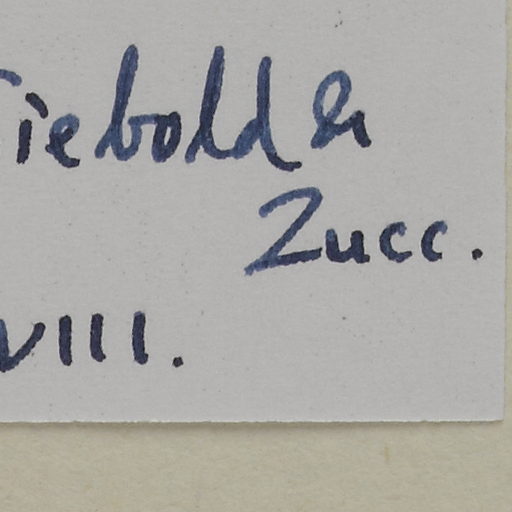 Siebold &
Zucc.
VIII.